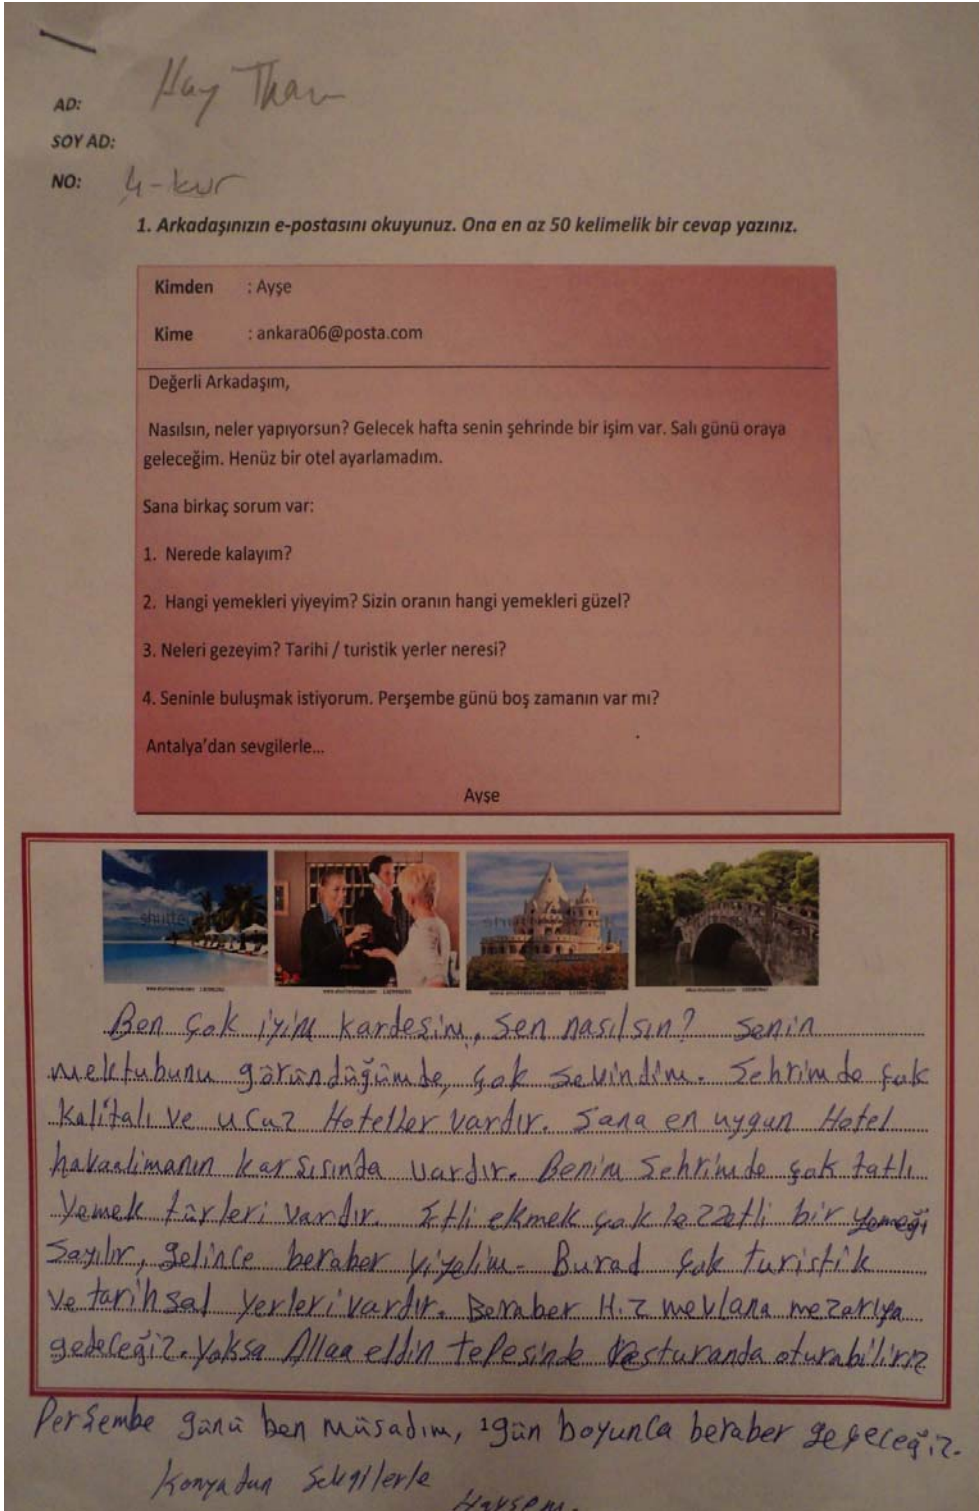 AD: Hay Than
SOY AD:
NO: 4-kur
1. Arkadaşınızın e-postasını okuyunuz. Ona en az 50 kelimelik bir cevap yazınız.
Kimden : Ayşe
Kime : ankara06@posta.com
Değerli Arkadaşım,
Nasılsın, neler yapıyorsun? Gelecek hafta senin şehrinde bir işim var. Salı günü oraya
geleceğim. Henüz bir otel ayarlamadım.
Sana birkaç sorum var:
1. Nerede kalayım?
2. Hangi yemekleri yiyeyim? Sizin oranın hangi yemekleri güzel?
3. Neleri gezeyim? Tarihi / turistik yerler neresi?
4. Seninle buluşmak istiyorum. Perşembe günü boş zamanın var mı?
Antalya'dan sevgilerle...
Ayşe
Ben çok iyim kardeşim, sen nasılsın? senin
mektubunu göründüğümde, çok sevindim. Şehrimde çok
Kalitalı ve ucuz Hoteller vardır. Sana en uygun Hotel
havaalimanın karşısında vardır. Benim Şehrimde çok tatlı
Yemek türleri vardır. Etli ekmek çok lezzetli bir yemeği
Sayılır, gelince beraber yiyelim. Burad çok turistik
ve tarihsal yerleri vardır. Beraber H.z mevlana mezarıya
gedeceğiz. Yoksa Allaa eldin tepesinde Resturanda oturabiliriz
Perşembe günü ben müsadım, 1gün boyunca beraber geçeceğiz.
Konyadan Sevgilerle